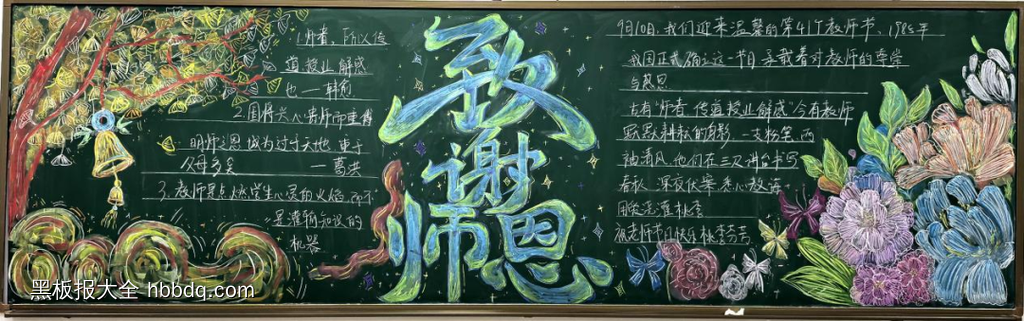 1.师者,所以传
道授业解惑
也—韩愈
2.国将兴,心贵师而重傅
明师之恩,诚为过于天地,重于
父母多矣 —葛洪
3.教师是点燃学生心灵的火焰,而不
是灌输知识的
机器
致
谢
师恩
9月10日,我们迎来温馨的第41个教师节、1985年
我国正式确立这一节日承载着对教师的尊崇
与感恩
古有“师者,传道授业解惑”今有教师
默默耕耘的身影,一支粉笔,两
袖清风,他们在三尺讲台书写
春秋,深夜伏案,悉心教诲
用爱浇灌桃李
祝老师节日快乐桃李芬芳
黑板报大全 hbbdq.com